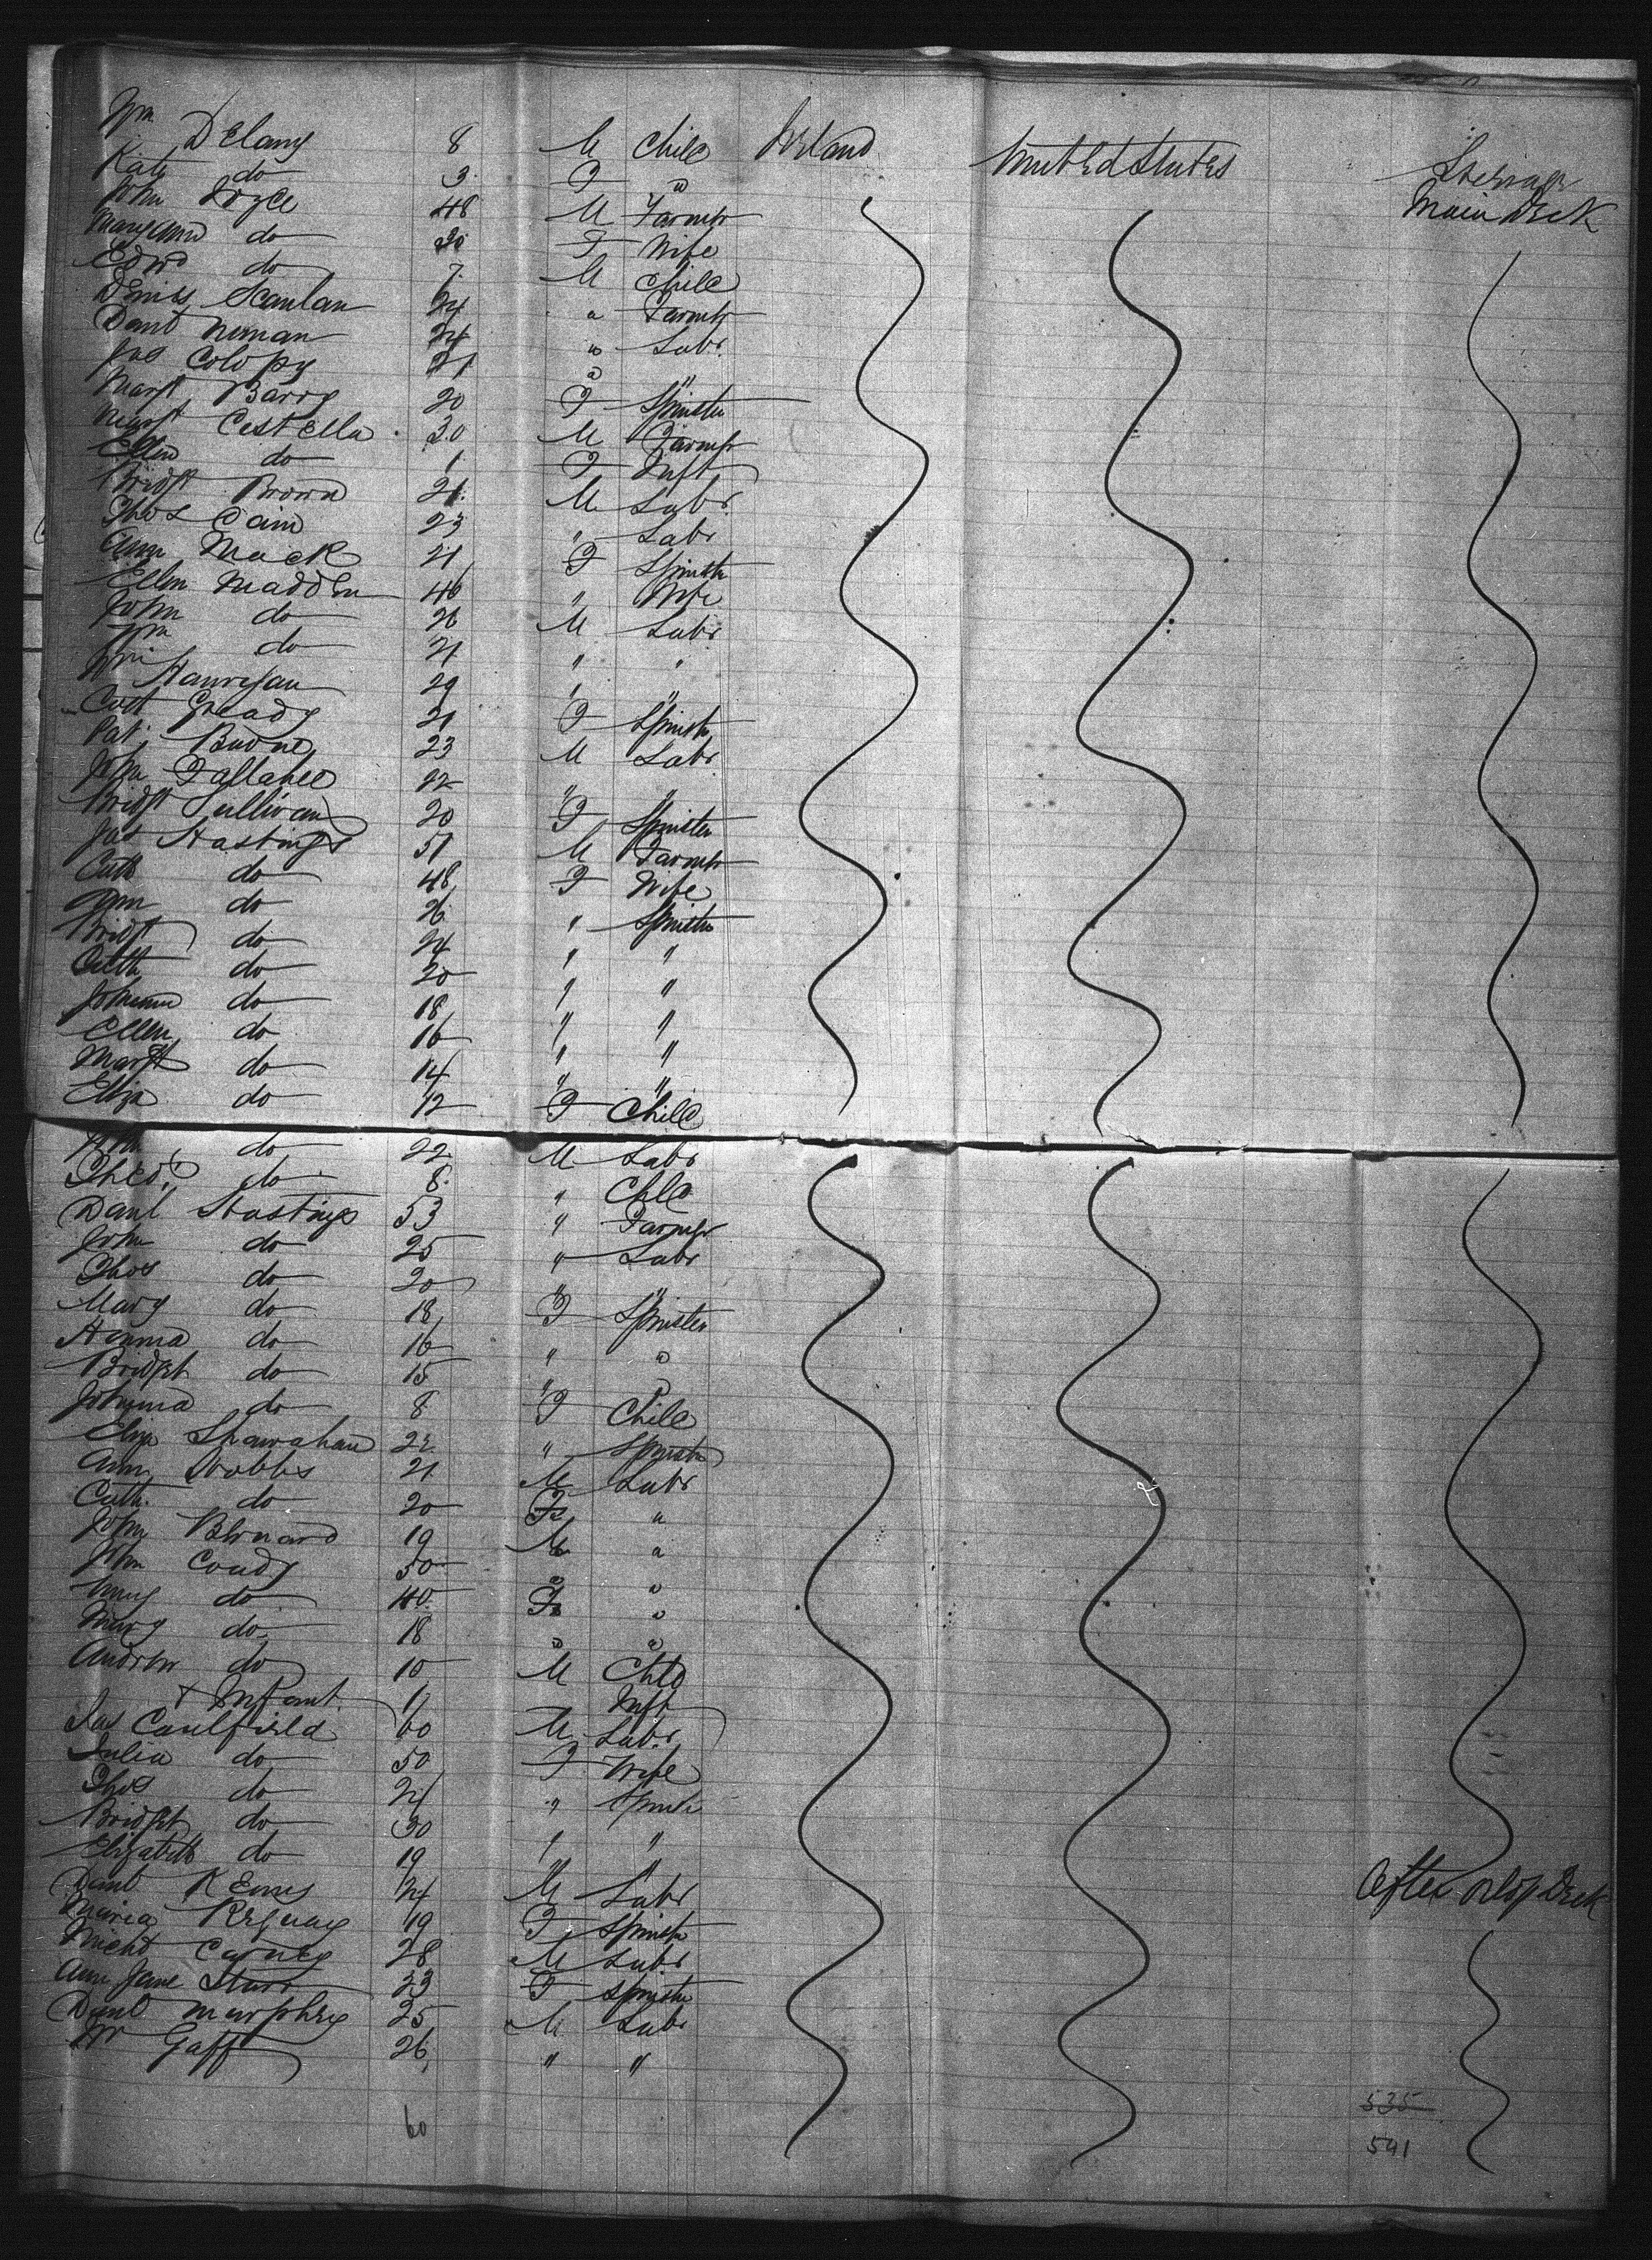 Wm Delany 8 M Child Ireland United States Steerage
Kate do 3 F " Main Deck
John Joyce 48 M Farmer
Maryann do 30 F Wife
Edwd do 7 M Child
Denis Scanlan 24 " Farmer
Danl 24 " Labr
Jas Colopy 21 " "
Margt Barry 20 F Spinster
Margt Costella 30 M Farmer
Ellen do 1 F Inft
Bridgt Brown 21 M Labr
Thos Cain 23 " Labr
Ann Mack 21 F Spinstr
Ellen Madden 46 " Wife
John do 26 M Labr
Wm do 21 " "
Wm Hanregan 29 " "
Cath Gready 21 F Spinstr
Pat 23 M Labr
John Fallahee 22 " "
Bridgt Sullivan 20 F Spinster
Jas Hastings 51 M Farmer
Cath do 48 F Wife
Ann do 26 " Spinster
Bridgt do 24 " "
Cath do 20 " "
Johanna do 18 " "
Ellen do 16 " "
Margt do 14 " "
Eliza do 12 F Child
do 22 M Labr
do 8 " Chld
Danl Hastings 53 " Farmer
John do 25 " Labr
Thos do 20 " "
Mary do 18 F Spinster
Hanna do 16 " "
Bridget do 15 " "
Johanna do 8 F Child
Eliza Shanahan 22 " Spinstr
Ann 21 M Labr
Cath. do 20 F "
John 19 M "
John Coudy 50 " "
do 40 F "
Mary do 18 " "
Andrew do 10 M Chld
+ Infant 1 Inft
Jas Caulfield 60 M Labr
Julia do 50 F Wife
Thos do 21 " Spinstr
Bridget do 30 " "
Elizabeth do 19 " "
Danl 24 M Labr After Orlop Deck
Maria 19 F Spinstr
Michl Carney 28 M Labr
Ann Jane Starr 23 F Spinstr
Danl Murphey 25 M Labr
Wm Gaff 26 " "
60
535
541